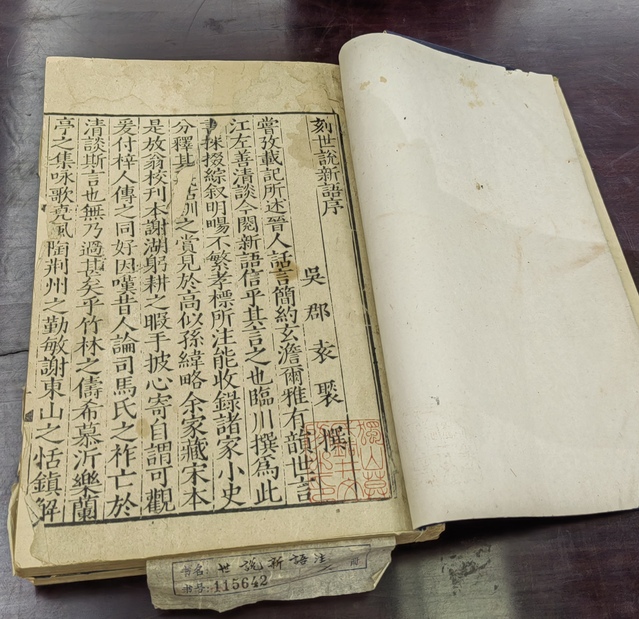 刻世說新語序
吳郡袁褧撰
嘗攷載記所述晉人話言簡約玄澹爾雅有韻世言
江左善清談今閱新語信乎其言之也臨川撰為此
書採掇綜叙明暢不繁孝標所注能收錄諸家小史
分釋其訓之賞見於高似孫緯略余家藏宋本
是放翁校刊本謝湖躬耕之暇手披心寄自謂可觀
爰付梓人傳之同好因嘆昔人論司馬氏之祚亡於
清談斯言也無乃過甚矣乎竹林之儔希慕沂樂蘭
亭之集咏歌堯風陶荊州之勤敏謝東山之恬鎮解
书名: 世說新語注
书号: 115642